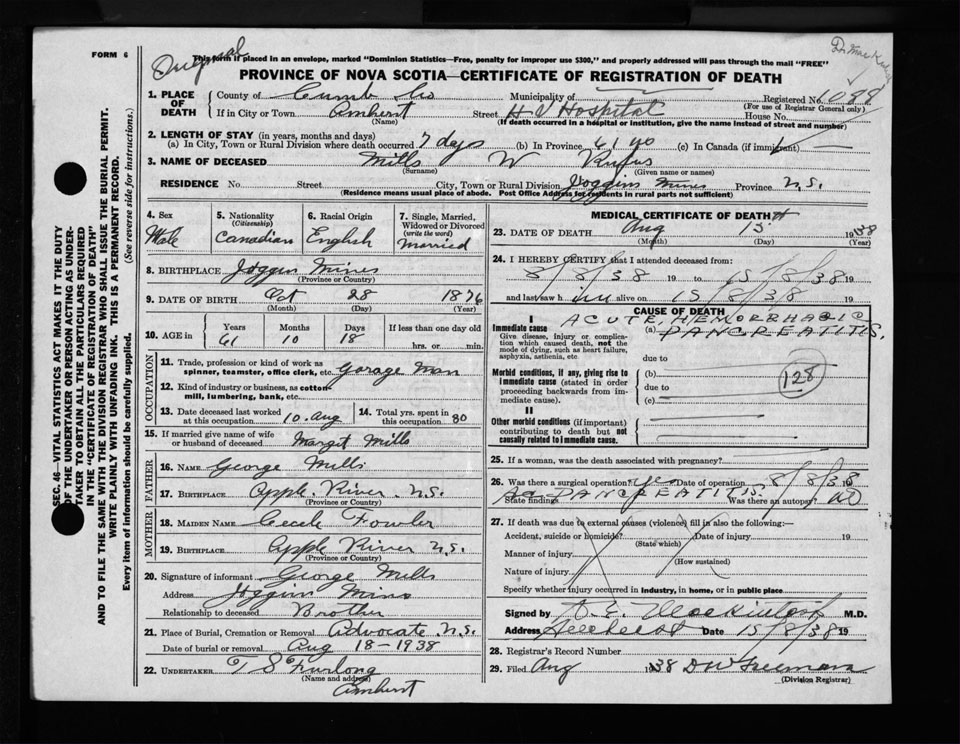 FORM 6
Original
Dr. Mackin
This form if placed in an envelope, marked "Dominion Statistics—Free, penalty for improper use $300," and properly addressed will pass through the mail "FREE"
PROVINCE OF NOVA SCOTIA—CERTIFICATE OF REGISTRATION OF DEATH
1. PLACE OF DEATH
County of Cumb Co Municipality of Registered No. 1099
(For use of Registrar General only)
If in City or Town Amherst Street H I Hospital House No.
(Name) (If death occurred in a hospital or institution, give the name instead of street and number)
2. LENGTH OF STAY (in years, months and days)
(a) In City, Town or Rural Division where death occurred 7 days (b) In Province 61 yo (c) In Canada (if immigrant)
3. NAME OF DECEASED Mills W Rufus
(Surname) (Given name or names)
RESIDENCE No. Street City, Town or Rural Division Joggins Mines Province N.S.
(Residence means usual place of abode. Post Office Address for residents in rural parts not sufficient)
4. Sex
Male
5. Nationality
(Citizenship)
Canadian
6. Racial Origin
English
7. Single, Married, Widowed or Divorced
(write the word)
Married
8. BIRTHPLACE Joggin Mines
(Province or Country)
9. DATE OF BIRTH Oct 28 1876
(Month) (Day) (Year)
10. AGE in
Years Months Days If less than one day old
61 10 18 hrs. or min.
OCCUPATION
11. Trade, profession or kind of work as
spinner, teamster, office clerk, etc. Garage Man
12. Kind of industry or business, as cotton
mill, lumbering, bank, etc.
13. Date deceased last worked
at this occupation 10. Aug
14. Total yrs. spent in
this occupation 80
15. If married give name of wife
or husband of deceased Margit Mills
FATHER
16. NAME George Mills
17. BIRTHPLACE Apple River N.S.
(Province or Country)
MOTHER
18. MAIDEN NAME Cecele Fowler
19. BIRTHPLACE Apple River N.S.
(Province or Country)
20. Signature of informant George Mills
Address Joggins Mines
Relationship to deceased Brother
21. Place of Burial, Cremation or Removal Advocate N.S.
Date of burial or removal Aug 18-1938
22. UNDERTAKER T S Furlong
(Name and address)
Amherst
MEDICAL CERTIFICATE OF DEATH
23. DATE OF DEATH Aug 15 1938
(Month) (Day) (Year)
24. I HEREBY CERTIFY that I attended deceased from:
8/8/38 19 to 15/8/38 19
and last saw him alive on 15/8/38 19
CAUSE OF DEATH
I
Immediate cause
Give disease, injury or complication which caused death, not the mode of dying, such as heart failure, asphyxia, asthenia, etc
(a) ACUTE HEMORRHAGIC
PANCREATITIS,
due to
Morbid conditions, if any, giving rise to immediate cause (stated in order proceeding backwards from immediate cause).
(b)
due to
(c)
128
II
Other morbid conditions (if important) contributing to death but not causally related to immediate cause.
25. If a woman, was the death associated with pregnancy?
26. Was there a surgical operation? yes Date of operation 8/8/38
State findings Ac PANCREATITIS. Was there an autopsy? NO
27. If death was due to external causes (violence) fill in also the following:—
Accident, suicide or homicide? Date of injury 19
(State which)
Manner of injury
(How sustained)
Nature of injury
Specify whether injury occurred in industry, in home, or in public place
Signed by D. E. Mackintosh M.D.
Address Amherst Date 15/8/38 19
28. Registrar's Record Number
29. Filed Aug 1938 D W Freeman
(Division Registrar)
SEC. 46—VITAL STATISTICS ACT MAKES IT THE DUTY
OF THE UNDERTAKER OR PERSON ACTING AS UNDER-
TAKER TO OBTAIN ALL THE PARTICULARS REQUIRED
IN THE "CERTIFICATE OF REGISTRATION OF DEATH"
AND TO FILE THE SAME WITH THE DIVISION REGISTRAR WHO SHALL ISSUE THE BURIAL PERMIT.
WRITE PLAINLY WITH UNFADING INK. THIS IS A PERMANENT RECORD.
Every item of information should be carefully supplied. (See reverse side for instructions.)